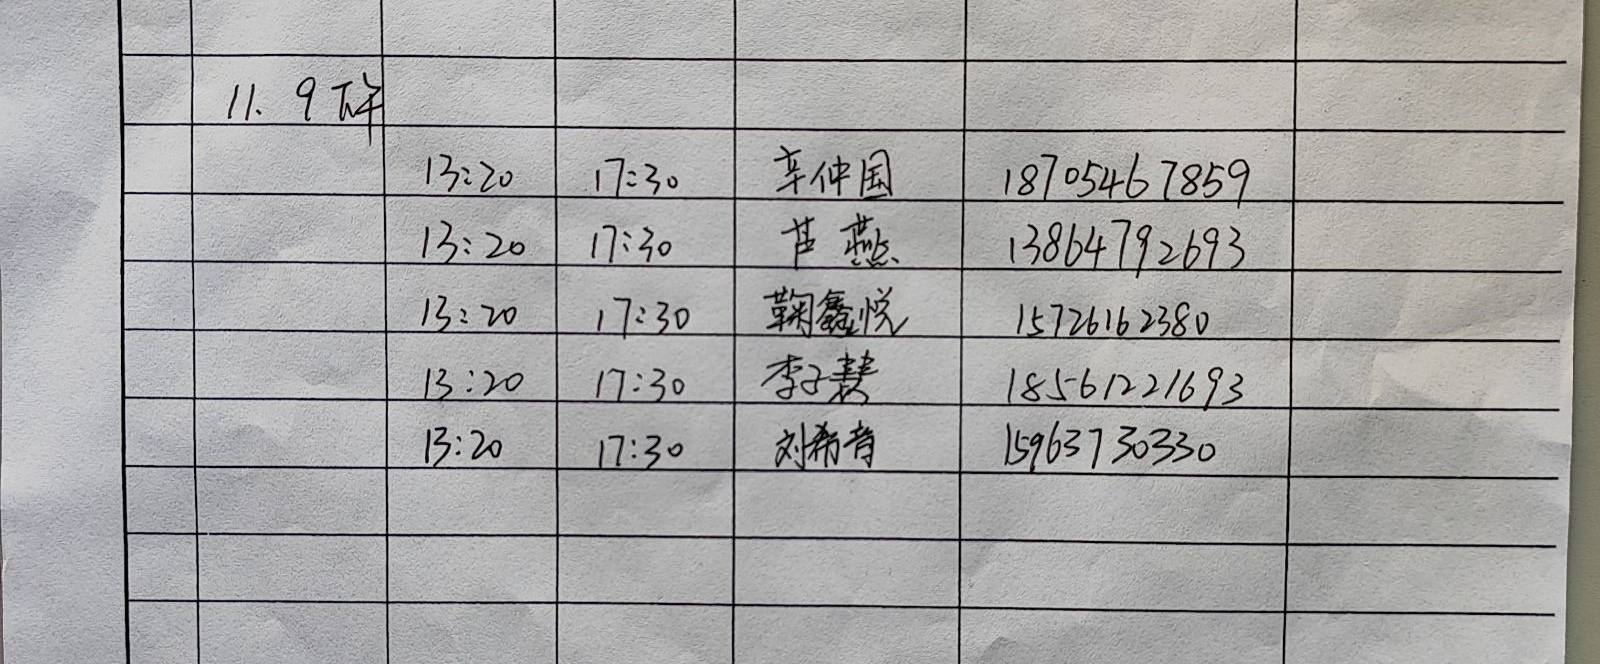 11. 9 下午
13:20 17:30 辛仲国 18705467859
13:20 17:30 芦燕 13864792693
13:20 17:30 鞠鑫悦 15726162380
13:20 17:30 李子慧 18561221693
13:20 17:30 刘希青 15963730330